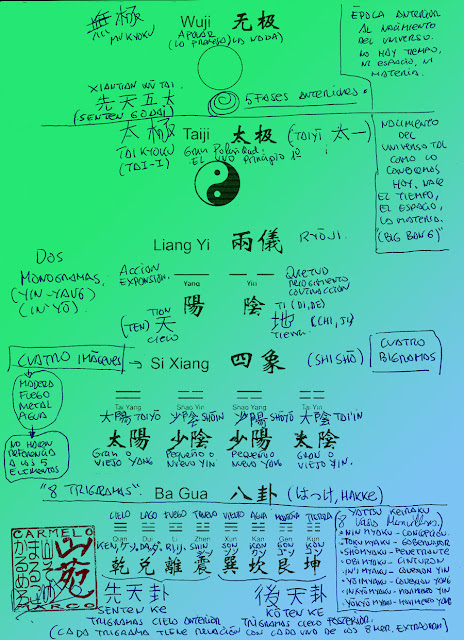 無極 Wuji 无极
MUKYOKU APOLAR
(LO PROPIO)(LA NADA)
ÉPOCA ANTERIOR
AL NACIMIENTO
DEL UNIVERSO.
NO HAY TIEMPO,
NI ESPACIO, NI
MATERIA.
XIANTIAN WŬ TAI
先天五太
(SENTEN GODAI)
5 FASES ANTERIORES
太極 Taiji 太极 (TAIYĪ 太一)
TAI KYOKU
(TAI-I)
Gran Polaridad.
EL UNO PRINCIPIO 1º
NACIMIENTO
DEL
UNIVERSO TAL
COMO LO
CONOCEMOS
HOY, NACE
EL TIEMPO,
EL ESPACIO,
LA MATERIA.
"(BIG BANG)"
Liang Yi 兩儀 RYŌJI.
DOS
MONOGRAMAS.
(YIN-YANG)
(IN-YŌ)
ACCION
EXPANSION.
QUETUD
CONTRACCIÓN
Yang Yin
陽 陰
TIAN
(TEN) 天
CIELO
TI (DI, DE)
地 (CHI, JI)
TIERRA.
CUATRO IMÁGENES → Si Xiang 四象 (SHISHŌ)
CUATRO
BIGRAMAS
MADERA
FUEGO
METAL
AGUA
NO HACEN
REFERENCIA
A LOS 5
ELEMENTOS
Tai Yang Shao Yin Shao Yang Tai Yin
太陽 TAIYŌ 少陰 SHŌIN 少陽 SHŌYŌ 太陰 TAI'IN
太陽 少陰 少陽 太陰
GRAN O
VIEJO YANG
PEQUEÑO O
NUEVO YIN
PEQUEÑO
NUEVO YANG
GRAN O
VIEJO YIN.
"8 TRIGRAMAS" Ba Gua 八卦 (はっけ, HAKKE)
CIELO LAGO FUEGO TRUENO VIENTO AGUA MONTAÑA TIERRA
Qian Dui Li Zhen Xun Kan Gen Kun
乾 兌 離 震 巽 坎 艮 坤
先天卦 後天卦
SENTEN KE KŌTEN KE
TRIGRAMAS CIELO ANTERIOR TRIGRAMAS CIELO POSTERIOR.
(CADA TRIGRAMA TIENE RELACIÓN CON CADA UNO DE LOS 8 MER. EXTRAORD.)
8 VASOS MARAVILLOSOS
• NIN MYAKU - CONCEPCIÓN
• TOKU MYAKU - GOBERNADOR
• SHŌ MYAKU - PENETRANTE
• OBI MYAKU - CINTURON
• IN'I MYAKU - CONEXION YIN
• YŌI MYAKU - CONEXION YANG
• INKYŌ MYAKU - MOVIMIENTO YIN
• YŌKYŌ MYAKU - MOVIMIENTO YANG
CARMELO
山苑
MARCO